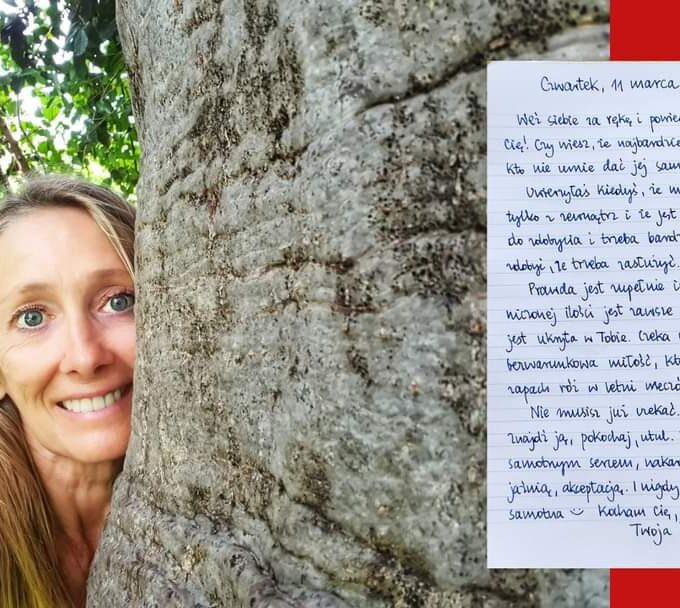 Czwartek, 11 marca
Weź siebie za rękę i powied
Cię! Czy wiesz, że najbardzie
kto nie umie dać jej sam
Uwierzyłaś kiedyś, że m
tylko z zewnątrz i że jest
do zdobycia i trzeba bard
zdobyć, że trzeba zasłużyć.
Prawda jest zupełnie i
niczonej ilości jest zawsze
jest ukryta w Tobie. Czeka
bezwarunkowa miłość, kt
zapach róż w letni wieczó
Nie musisz już czekać.
znajdź ją, pokochaj, utul.
samotnym sercem, nakar
jaźnią, akceptacją. I nigdy
samotna ☺ Kocham Cię,
Twoja